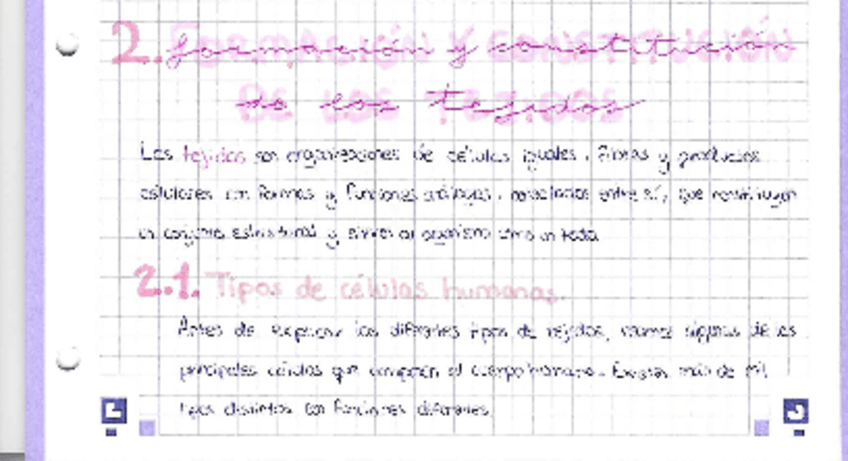 2. formación y constitución
de los tejidos
Los tejidos son organizaciones de células iguales, fibras y productos
celulares con formas y funciones análogas, asociados entre sí, que constituyen
un conjunto estructural y sirven al organismo como un todo.
2.1. Tipos de células humanas.
Antes de explicar los diferentes tipos de tejidos, veamos algunas de las
principales células que componen el cuerpo humano. Existen más de mil
tipos distintos con funciones diferentes.